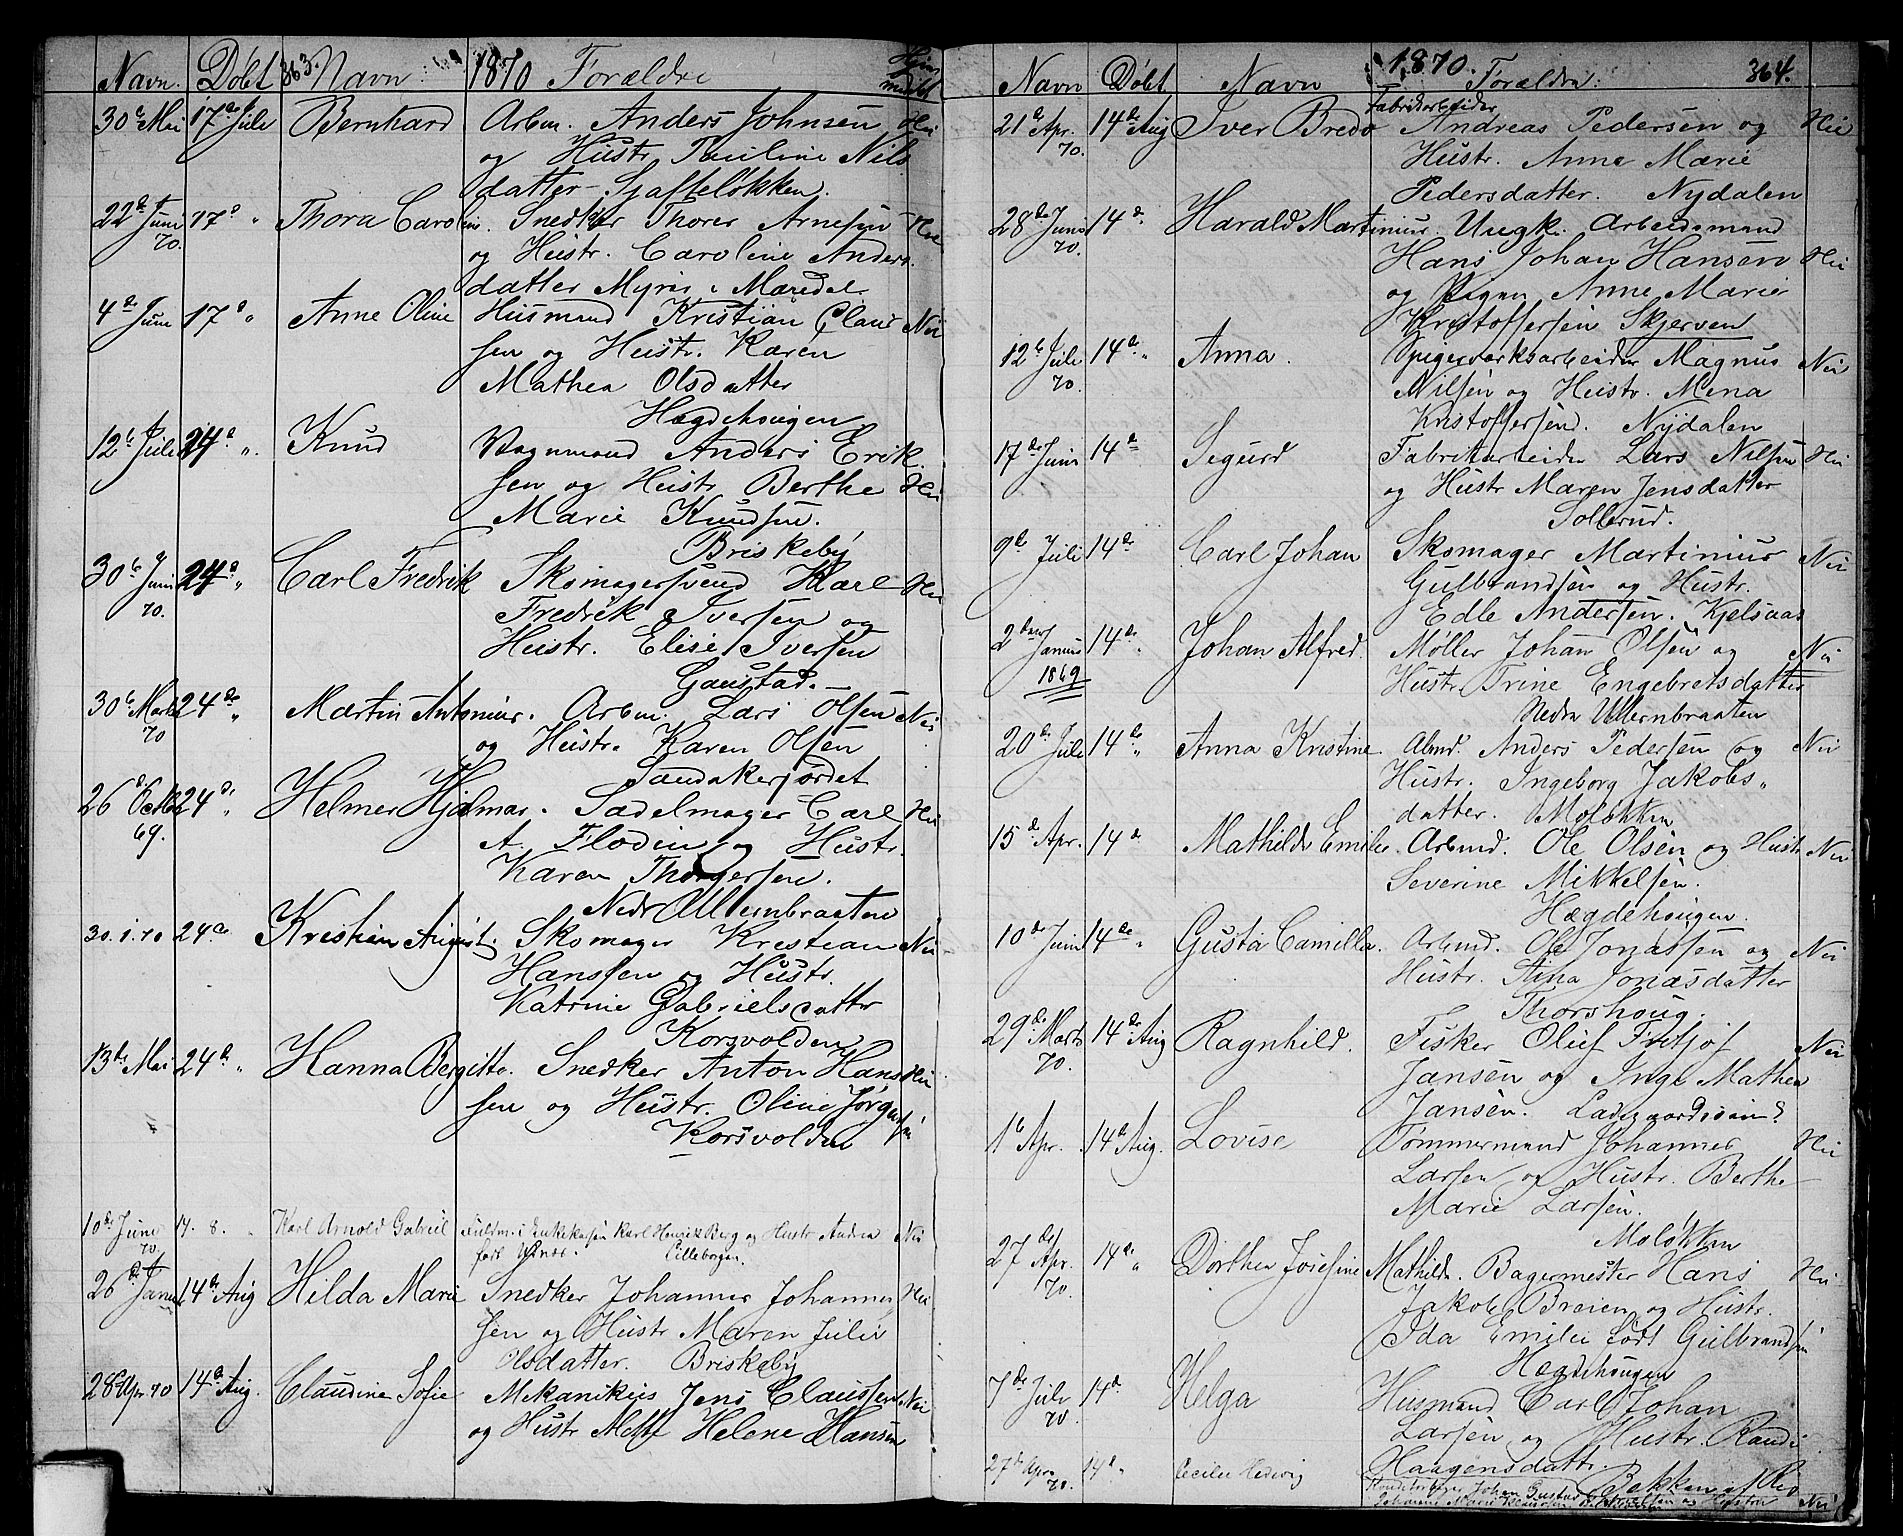 Navn. Døbt 363. Navn 1870 Forældre Hjem døbt
30te Mai 17de Juli Bernhard Arbm. Anders Johnsen Nei
og Hustr. Pauline Nils
datter
22de Juni 70. 17de " Thora Carolin. Snedker Thorer Arnesen Nei
og Hustr. Caroline Anders
datter Myrer i Maredal
4de Juni 17de " Anne Oline Husmand Kristian Claus Nei
sen og Hustr. Karen
Mathea Olsdatter
Hægdehougen
12te Juli 24de ". Knud Vognmand Anders Erik
sen og Hustr Berthe Nei
Marie Knudsen.
Briskeby
30te Juni 70. 24de " Carl Fredrik Skomagersvend Karl Nei
Fredrik Iversen og
Hustr. Elise Iversen
Gaustad.
30te Marts 70 24de " Martin Antonius. Arbm. Lars Olsen Nei
og Hustr. Karen Olsen
Sandakerjordet
26de Octbr 69. 24de " Helmer Hjalmar. Sadelmager Carl Nei
A. Flodin og Hustr.
Karen Thorgersen.
Nedr Ullernbraaten
30.1.70 24de Kristian August. Skomager Krestian Nei
Hanssen og Hustr.
Katrine Gabrielsdattr
Korsvolden
13de Mai 24de " Hanna Bergitte. Snedker Anton Hans Nei
sen og Hustr. Oline Jørgensen
Korsvolden
10de Juni 70 17. 8. " Karl Arnold Gabriel Fuldm. i Enkekassen Karl Henrik Berg og Hustr Andrea Nei
født Lillebogen.
26de Janur 14de Aug Hilda Marie Snedker Johannes Johannes Nei
sen og Hustr Maren Julie
Olsdatter. Briskeby
28de Apr 70 14de Aug. Claudine Sofie Mekanikus Jens Claussen Nei
og Hustr Mette Helene Hansen
Navn Døbt Navn 1870. Forældre. 364.
21de Apr. 70. 14de Aug Iver Bredo Fabrikarbeider Andreas Pedersen og Nei
Hustr. Anne Marie
Pedersdatter. Nydalen
28de Juni 70. 14de. Harald Martinius. Ungk. Arbeidsmand
Hans Johan Hansen Nei
og Pigen Anne Marie
Kristoffersen Skjerven
12te Juli 70. 14de. " Anna. Spigerverksarbeider Magnus Nei
Nilsen og Hustr. Mena
Kristoffersend. Nydalen
17de Juni 14de Sigurd Fabrikarbeider Lars Nilsen Nei
og Hustr Maren Jensdatter
Sollerud.
9de Juli 14de Carl Johan Skomager Martinius Nei
Gulbrandsen og Hustr.
Edle Andersen. Kjelsaas
2den Januar 1869 14de " Johan Alfred. Møller Johan Olsen og Nei
Hustr. Trine Engebretsdatter
Nedre Ullernbraaten
20de Juli 14de " Anna Kristine. Abmd. Anders Pedersen og Nei
Hustr. Ingeborg Jakobs"
datter. Moløkken
15de Apr. 14de Mathilde Emilie. Arbmd. Ole Olsen og Hustr Nei
Severine Mikkelsen.
Hægdehougen.
10de Juni 14de " Gusta Camilla. Arbmd. Ole Jonassen og Nei
Hustr. Stina Jonasdatter
Thorshoug.
29de Marts 70. 14de Aug Ragnhild. Fisker Oluf Fritjof Nei
Jansen og Inge Mathea
Jansen. Ladegaardsøen?
1te Apr. 14de Aug. Lovise Tømmermand Johannes Nei
Larsen og Hustr. Berthe
Marie Larsen.
Moløkken
27de Apr. 70. 14de " Dorthea Josefine Mathilde. Bagermester Hans Nei
Jakob Breien og Hustr.
Ida Emilie født Gulbrandsen
Hægdehougen
7de Juli 70. 14de Helga Husmand Carl Johan
Larsen og Hustr. Randi
Haagensdattr.
Bekken
27de Apr. 70. 14de " Cecilie Hedevig Konditorsv. Johan Gustav og Hustru Nei